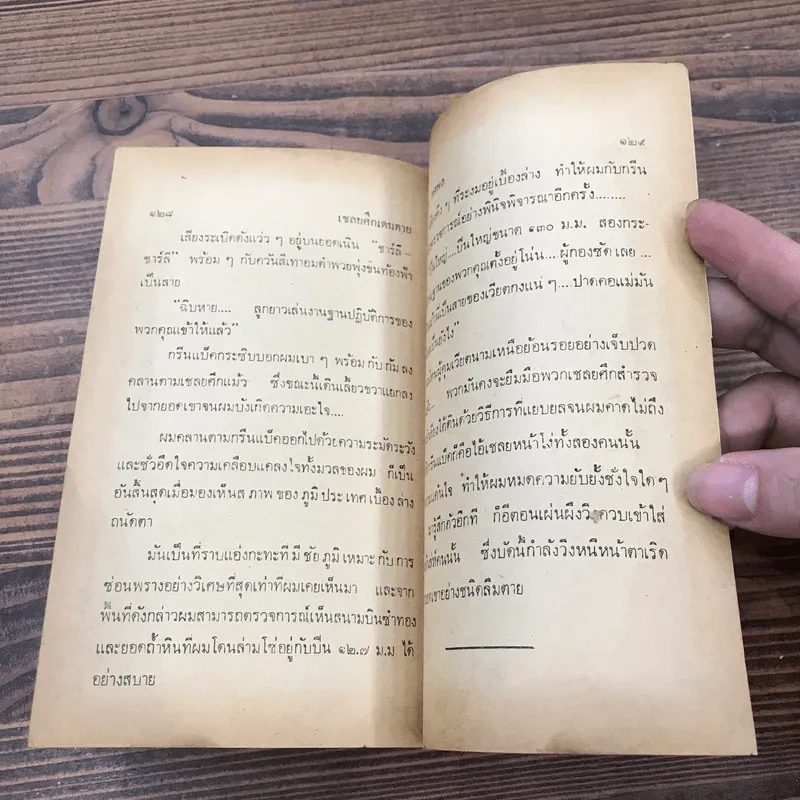 ๑๒๘ เชลยศึกเดนตาย
เสียงระเบิดดังแว่ว ๆ อยู่บนยอดเนิน "ชาร์ลี –
ชาร์ลี" พร้อม ๆ กับควันสีเทาอมดำพวยพุ่งขึ้นท้องฟ้า
เป็นสาย
"ฉิบหาย.... ลูกยาวเล่นงานฐานปฏิบัติการของ
พวกคุณเข้าให้แล้ว"
กรีนแบ็คกระซิบบอกผมเบา ๆ พร้อม กับ ก้ม ลง
คลานตามเชลยศึกแม้ว ซึ่งขณะนี้เดินเลี้ยวขวาแยกลง
ไปจากยอดเขาจนผมบังเกิดความเอะใจ....
ผมคลานตามกรีนแบ็คออกไปด้วยความระมัดระวัง
และชั่วอึดใจความเคลือบแคลงใจทั้งมวลของผม ก็เป็น
อันสิ้นสุดเมื่อมองเห็นส ภาพ ของ ภูมิ ประ เทศ เบื้อง ล่าง
ถนัดตา
มันเป็นที่ราบแอ่งกะทะที่ มี ชัย ภูมิ เหมาะ กับ การ
ซ่อนพรางอย่างวิเศษที่สุดเท่าที่ผมเคยเห็นมา และจาก
พื้นที่ดังกล่าวผมสามารถตรวจการณ์เห็นสนามบินซำทอง
และยอดถ้ำหินที่ผมโดนล่ามโซ่อยู่กับปืน ๑๒.๗ ม.ม ได้
อย่างสบาย
๑๒๙
ๆ ที่ระงมอยู่เบื้องล่าง ทำให้ผมกับกรีน
ตรวจการณ์อย่างพินิจพิจารณาอีกครั้ง........
ปืนใหญ่....ปืนใหญ่ขนาด ๑๓๐ ม.ม. สองกระ-
ฐานของพวกคุณตั้งอยู่โน่น....ผู้กองซัด เลย ...
นี่เป็นสายของเวียตกงแน่ ๆ....ปาดคอแม่มัน
เป็นยังไง"
ผู้คุมเวียดนามเหนือย้อนรอยอย่างเจ็บปวด
พวกมันคงจะยืมมือพวกเชลยศึกสำรวจ
ใกล้คืนด้วยวิธีการที่แยบยลจนผมคาดไม่ถึง
กรีนแบ็คก็คือไอ้เชลยหน้าโง่ทั้งสองคนนั้น
แค้นใจ ทำให้ผมหมดความยับยั้งชั่งใจใด ๆ
รู้สึกตัวอีกที ก็อีตอนเผ่นผึงวิ่งควบเข้าใส่
คนนั้น ซึ่งบัดนี้กำลังวิ่งหนีหน้าตาเริด
เขาอย่างชนิดลืมตาย